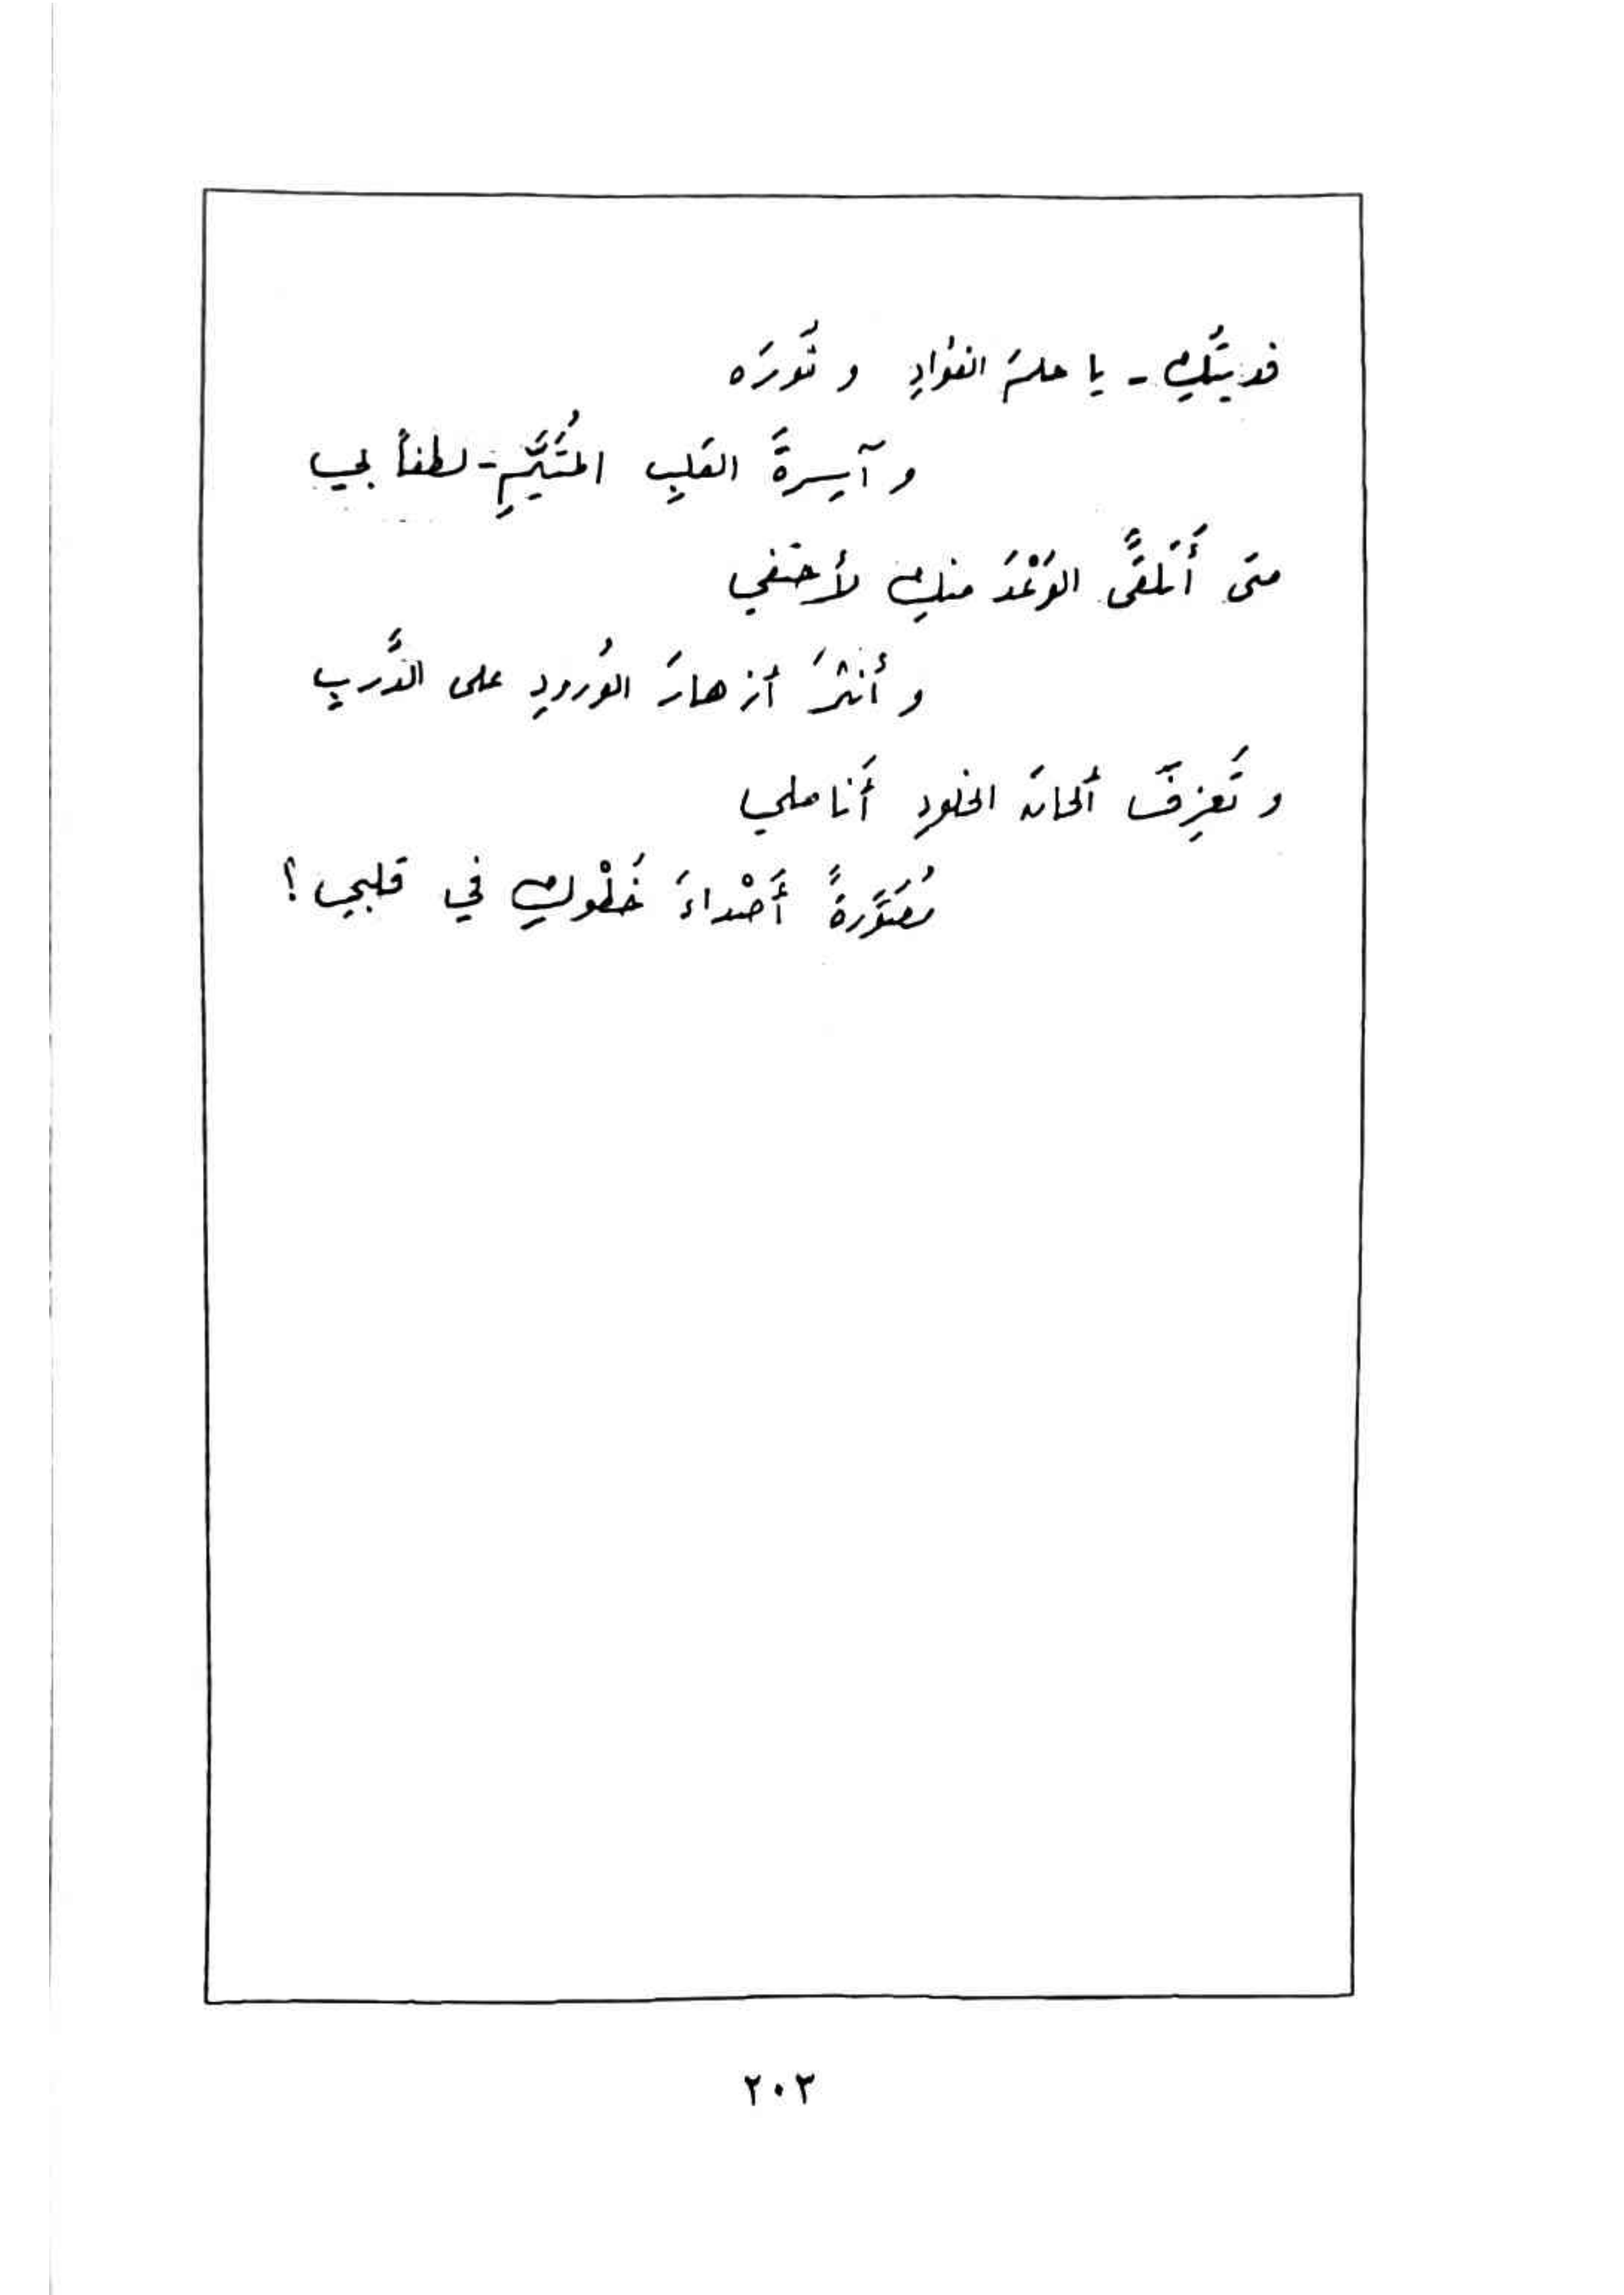 فديتُكِ - يا حلمَ الفؤادِ و نُورَه
و آسِرةَ القَلبِ المُتَيَّمِ - لطفاً بي
متى أَتلقَّى الوَعْدَ منكِ لأحتفي
و أنثرَ أزهارَ الوُرودِ على الدَّربِ
و تَعزِفَ ألحانَ الخلودِ أَناملي
مُصَوِّرةً أَصْداءَ خَطْوِكِ في قلبي ؟
٢٠٣